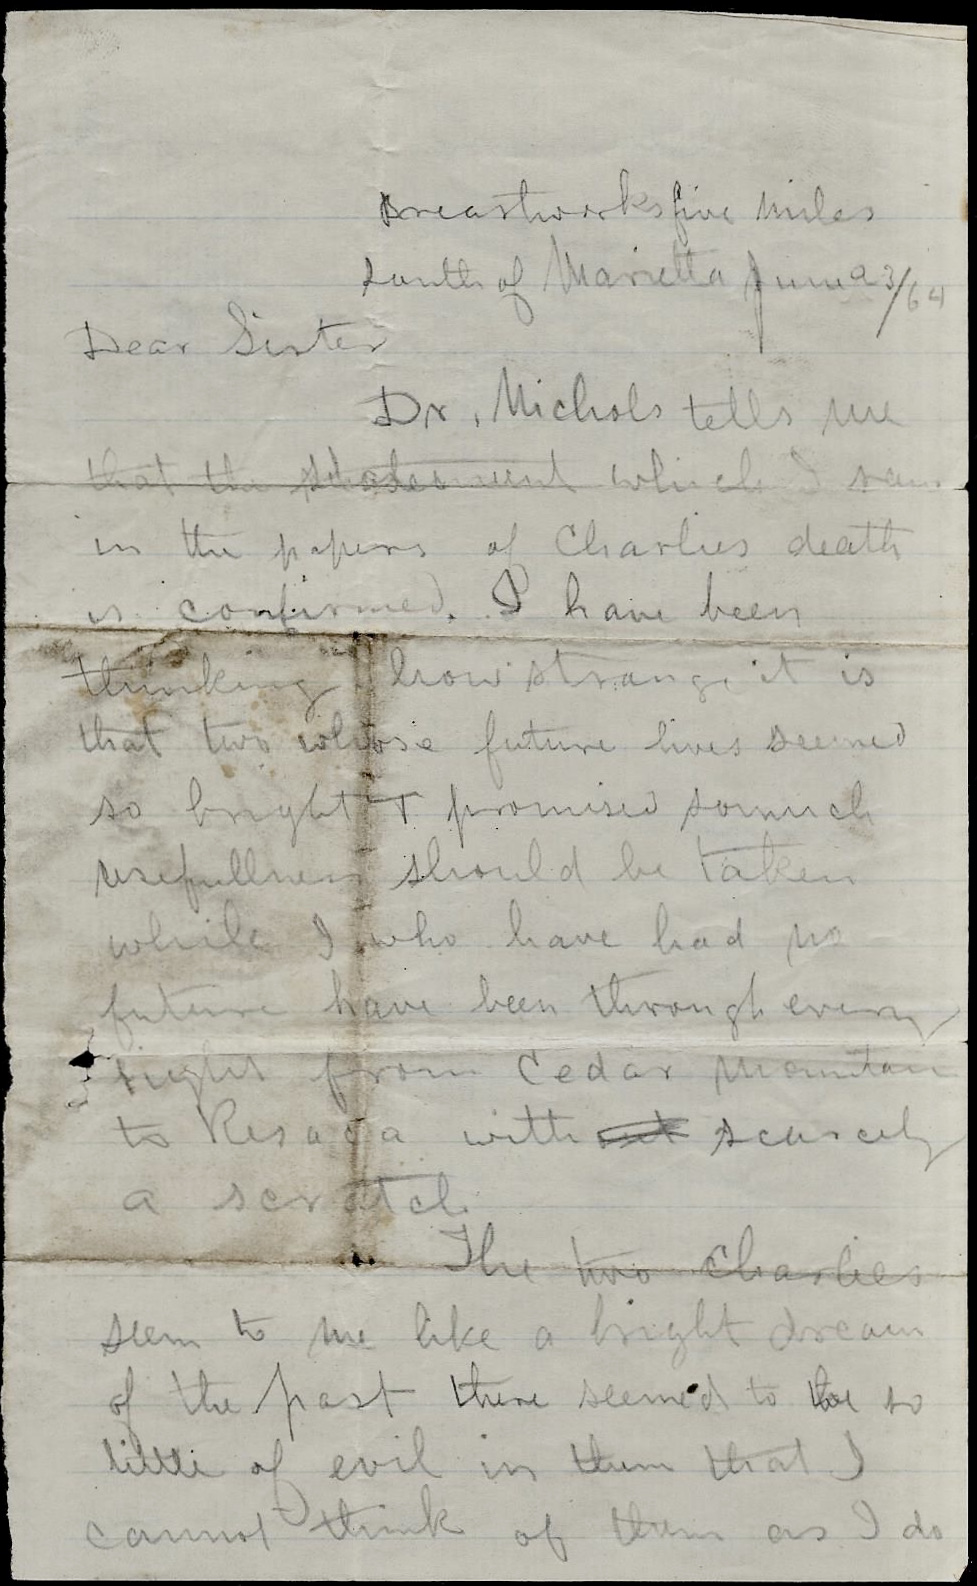 Breastworks five miles
south of Marietta June 23/64
Dear Sister
Dr. Nichols tells me
that the statement which I saw
in the papers of Charlies death
is confirmed. I have been
thinking how strange it is
that two whose future lives seemed
so bright & promised somuch
usefullness should be taken
while I who have had no
future have been through every
fight from Cedar Mountain
to Resaca with scarcely
a scratch
The two Charlies
seem to me like a bright dream
of the past there seemed to be so
little of evil in them that I
cannot think of them as I do